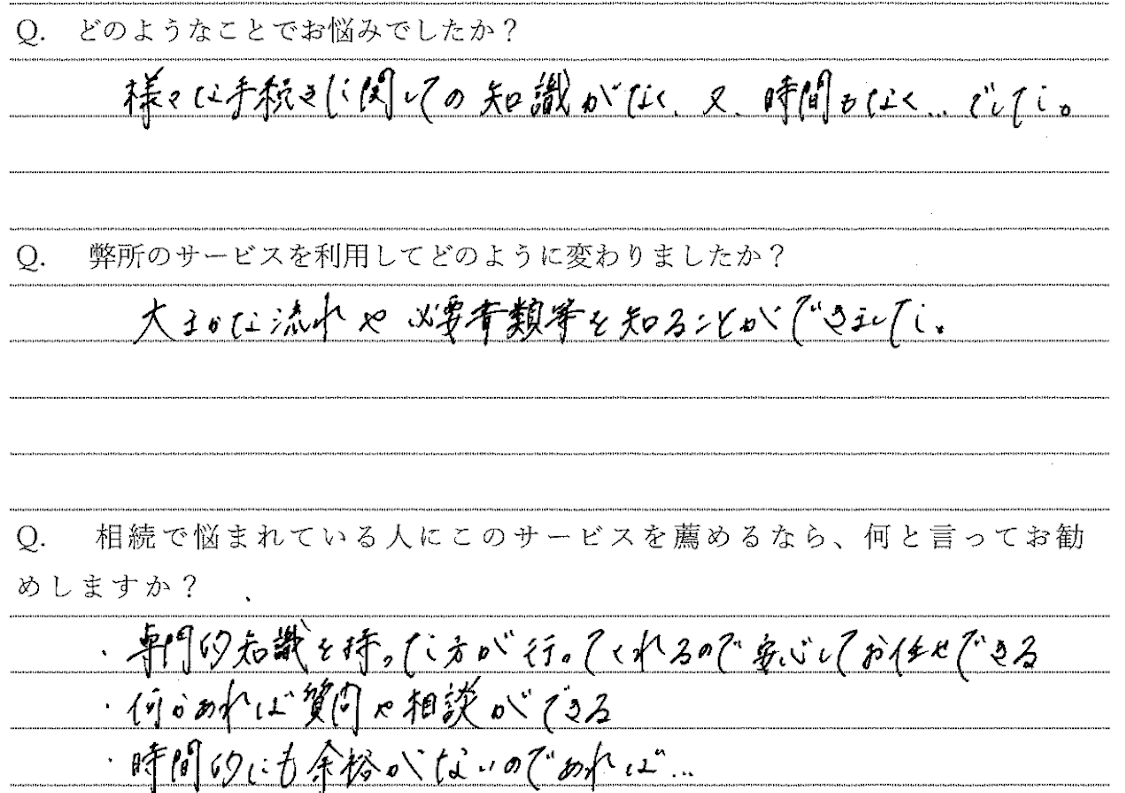 Q. どのようなことでお悩みでしたか？
様々な手続きに関しての知識がなく、又、時間もなく…でした。
Q. 弊所のサービスを利用してどのように変わりましたか？
大まかな流れや必要書類等を知ることができました。
Q. 相続で悩まれている人にこのサービスを薦めるなら、何と言ってお勧
めしますか？
・専門的知識を持った方が行ってくれるので安心してお任せできる
・何かあれば質問や相談ができる
・時間的にも余裕がないのであれば…